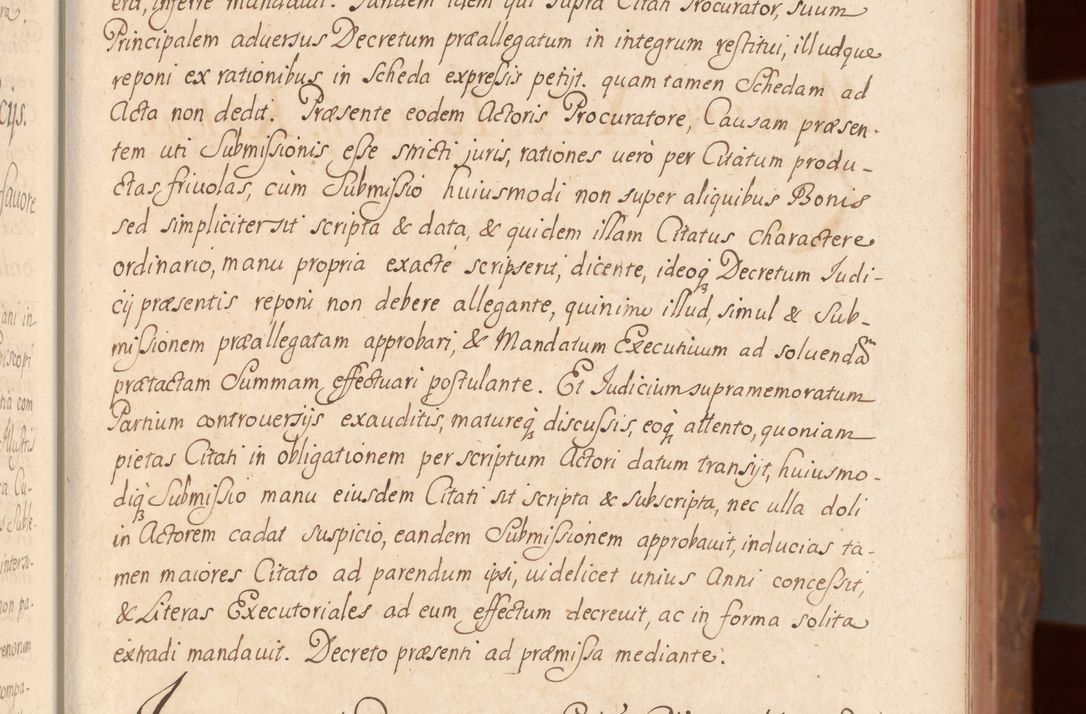 era, inferre mandavit. Tandem idem qui supra Citati Procurator, suum
Principalem adversus Decretum præallegatum in integrum restitui, illudque
reponi ex rationibus in Scheda expressis petijt. quam tamen Schedam ad
Acta non dedit. Præsente eodem Actoris Procuratore, Causam præsen-
tem uti Submissionis esse stricti juris, rationes uerò per Citatum produ-
ctas, friuolas, cùm Submissio huiusmodi non super aliquibus Bonis
sed simpliciter sit scripta & data, & quidem illam Citatus charactere
ordinario, manu propria exacté scripserit, dicente, ideoq; Decretum Judi-
cij præsentis reponi non debere allegante, quinimo illud, simul & Sub-
missionem præallegatam approbari, & Mandatum Executiuum ad soluendam
prætactam Summam effectuari postulante. Et Judicium supramemoratum
Partium controuersijs exauditis, matureq; discussis, eoq; attento, quoniam
pietas Citati in obligationem per scriptum Actori datum transijt, huiusmo-
diq; Submissio manu eiusdem Citati sit scripta & subscripta, nec ulla doli
in Actorem cadat suspicio, eandem Submissionem approbauit, inducias ta-
men maiores Citato ad parendum ipsi, uidelicet unius Anni concessit,
& Literas Executoriales ad eum effectum decreuit, ac in forma solita
extradi mandauit. Decreto præsenti ad præmissa mediante.
cijs.
fauore
ani in
piscopi
ha com
Illustris
ra Cu-
non pa-
ompa-